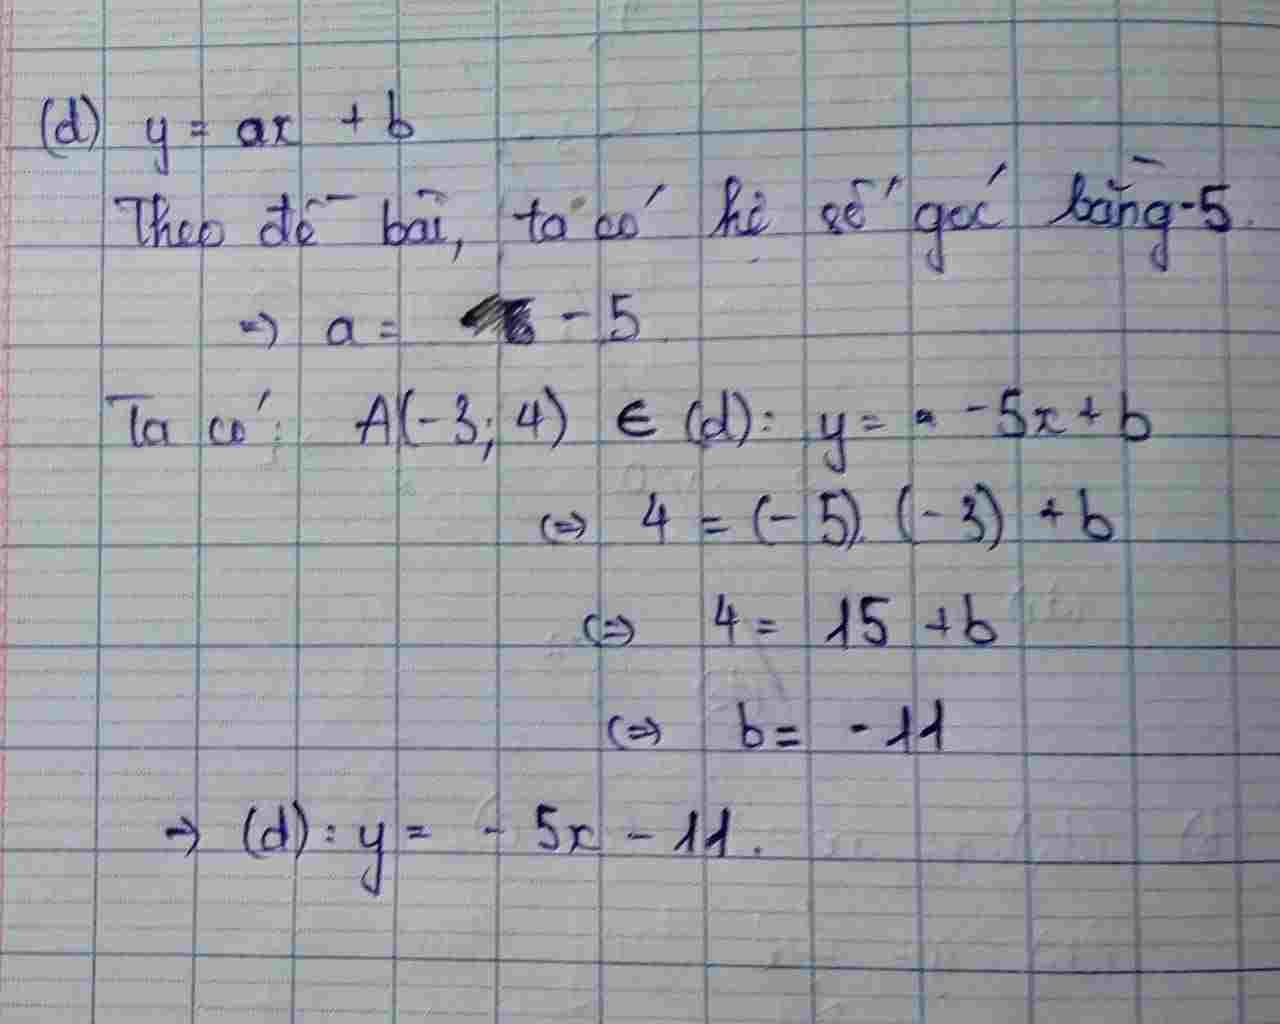 (d) y = ax + b
Theo đề bài, ta có hệ số góc bằng -5.
=> a = -5.
Ta có: A(-3; 4) ∈ (d): y = -5x + b
<=> 4 = (-5).(-3) + b
<=> 4 = 15 + b
<=> b = -11
=> (d): y = -5x - 11.